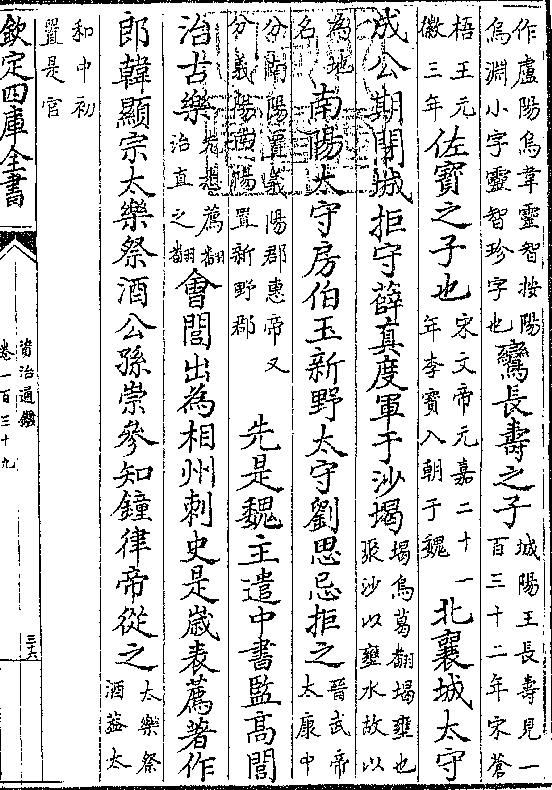 作盧陽烏韋靈智按陽烏淵小字靈智珍字也鸞長壽之子城陽王長壽見一百三十二年宋蒼
梧王元徽三年佐寶之子也宋文帝元嘉二十一年李寶入朝于魏北襄城太守
成公期閉城拒守薛真度軍于沙堨堨烏葛翻堨壅也聚沙以壅水故以
為地名南陽太守房伯玉新野太守劉思忌拒之晉武帝太康中
分南陽置義陽郡惠帝又分義陽南陽置新野郡先是魏主遣中書監高閭
治古樂先悉薦翻治直之翻會閭出為相州刺史是歲表薦著作
郎韓顯宗太樂祭酒公孫崇參知鐘律帝從之太樂祭酒葢太
和中初置是官
欽定四庫全書
資治通鑑
卷一百三十九
三六